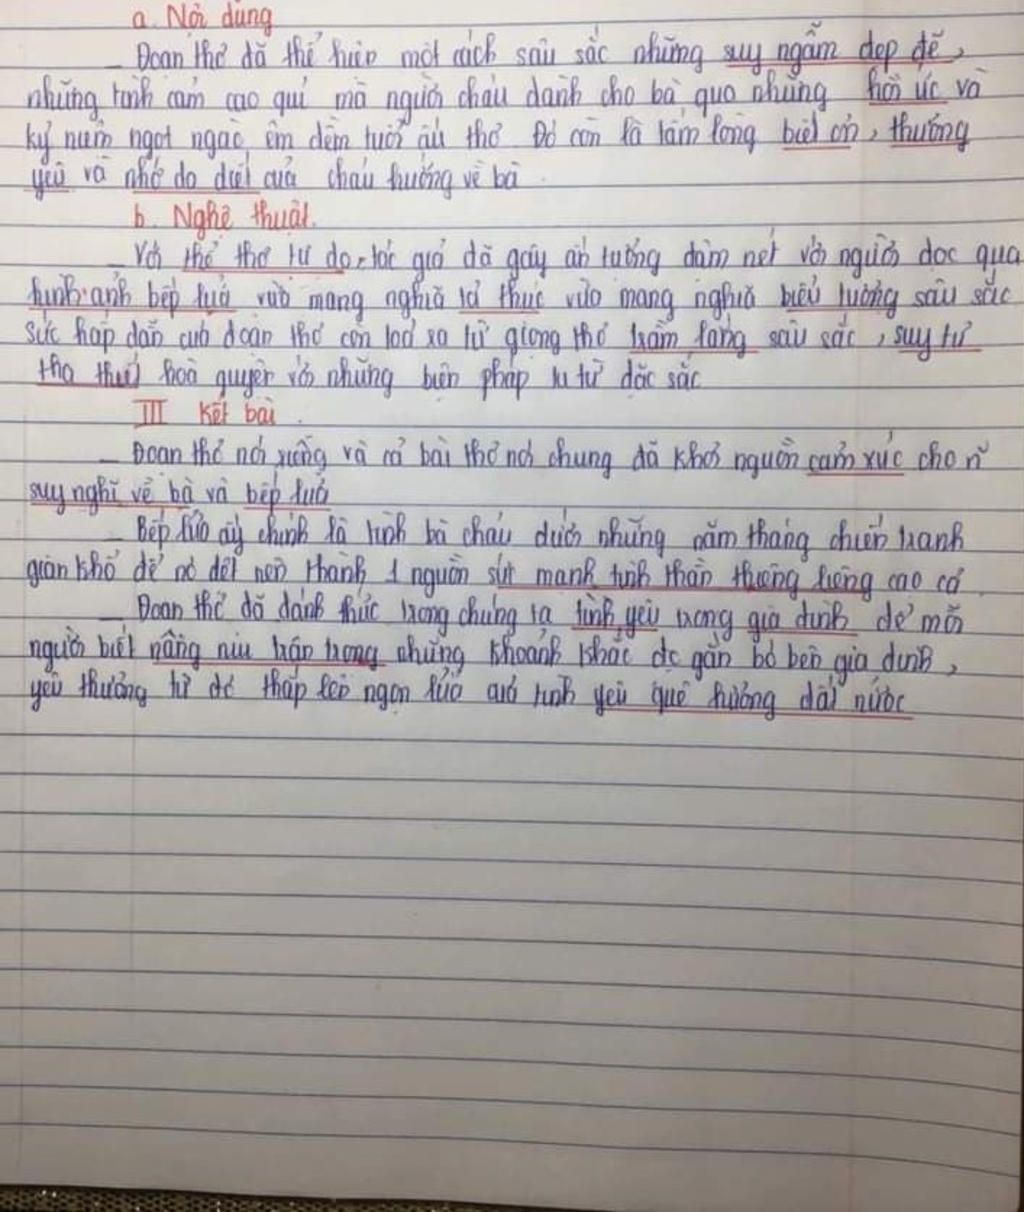 a. Nội dung
_ Đoạn thơ đã thể hiện một cách sâu sắc những suy ngẫm đẹp đẽ,
những tình cảm cao quí mà người cháu dành cho bà qua những hồi ức và
kỷ niệm ngọt ngào êm đềm tuổi ấu thơ Đó còn là tấm lòng biết ơn, thương
yêu và nhớ da diết của cháu hướng về bà.
b. Nghệ thuật.
_ Với thể thơ tự do, tác giả đã gây ấn tượng đậm nét với người đọc qua
hình ảnh bếp lửa vừa mang nghĩa tả thực vừa mang nghĩa biểu tượng sâu sắc
Sức hấp dẫn của đoạn thơ còn toả ra từ giọng thơ trầm lắng sâu sắc, suy tư
tha thiết hoà quyện với những biện pháp tu từ đặc sắc
III Kết bài.
_ Đoạn thơ nói riêng và cả bài thơ nói chung đã khơi nguồn cảm xúc cho n~
suy nghĩ về bà và bếp lửa
_ Bếp lửa ấy chính là tình bà cháu dưới những năm tháng chiến tranh
gian khổ để nó dệt nên thành 1 nguồn sức mạnh tinh thần thiêng liêng cao cả.
_ Đoạn thơ đã đánh thức trong chúng ta tình yêu trong gia đình để mỗi
người biết nâng niu trân trọng những khoảnh khắc đc gắn bó bên gia đình,
yêu thương từ đó thắp lên ngọn lửa của tình yêu quê hương đất nước